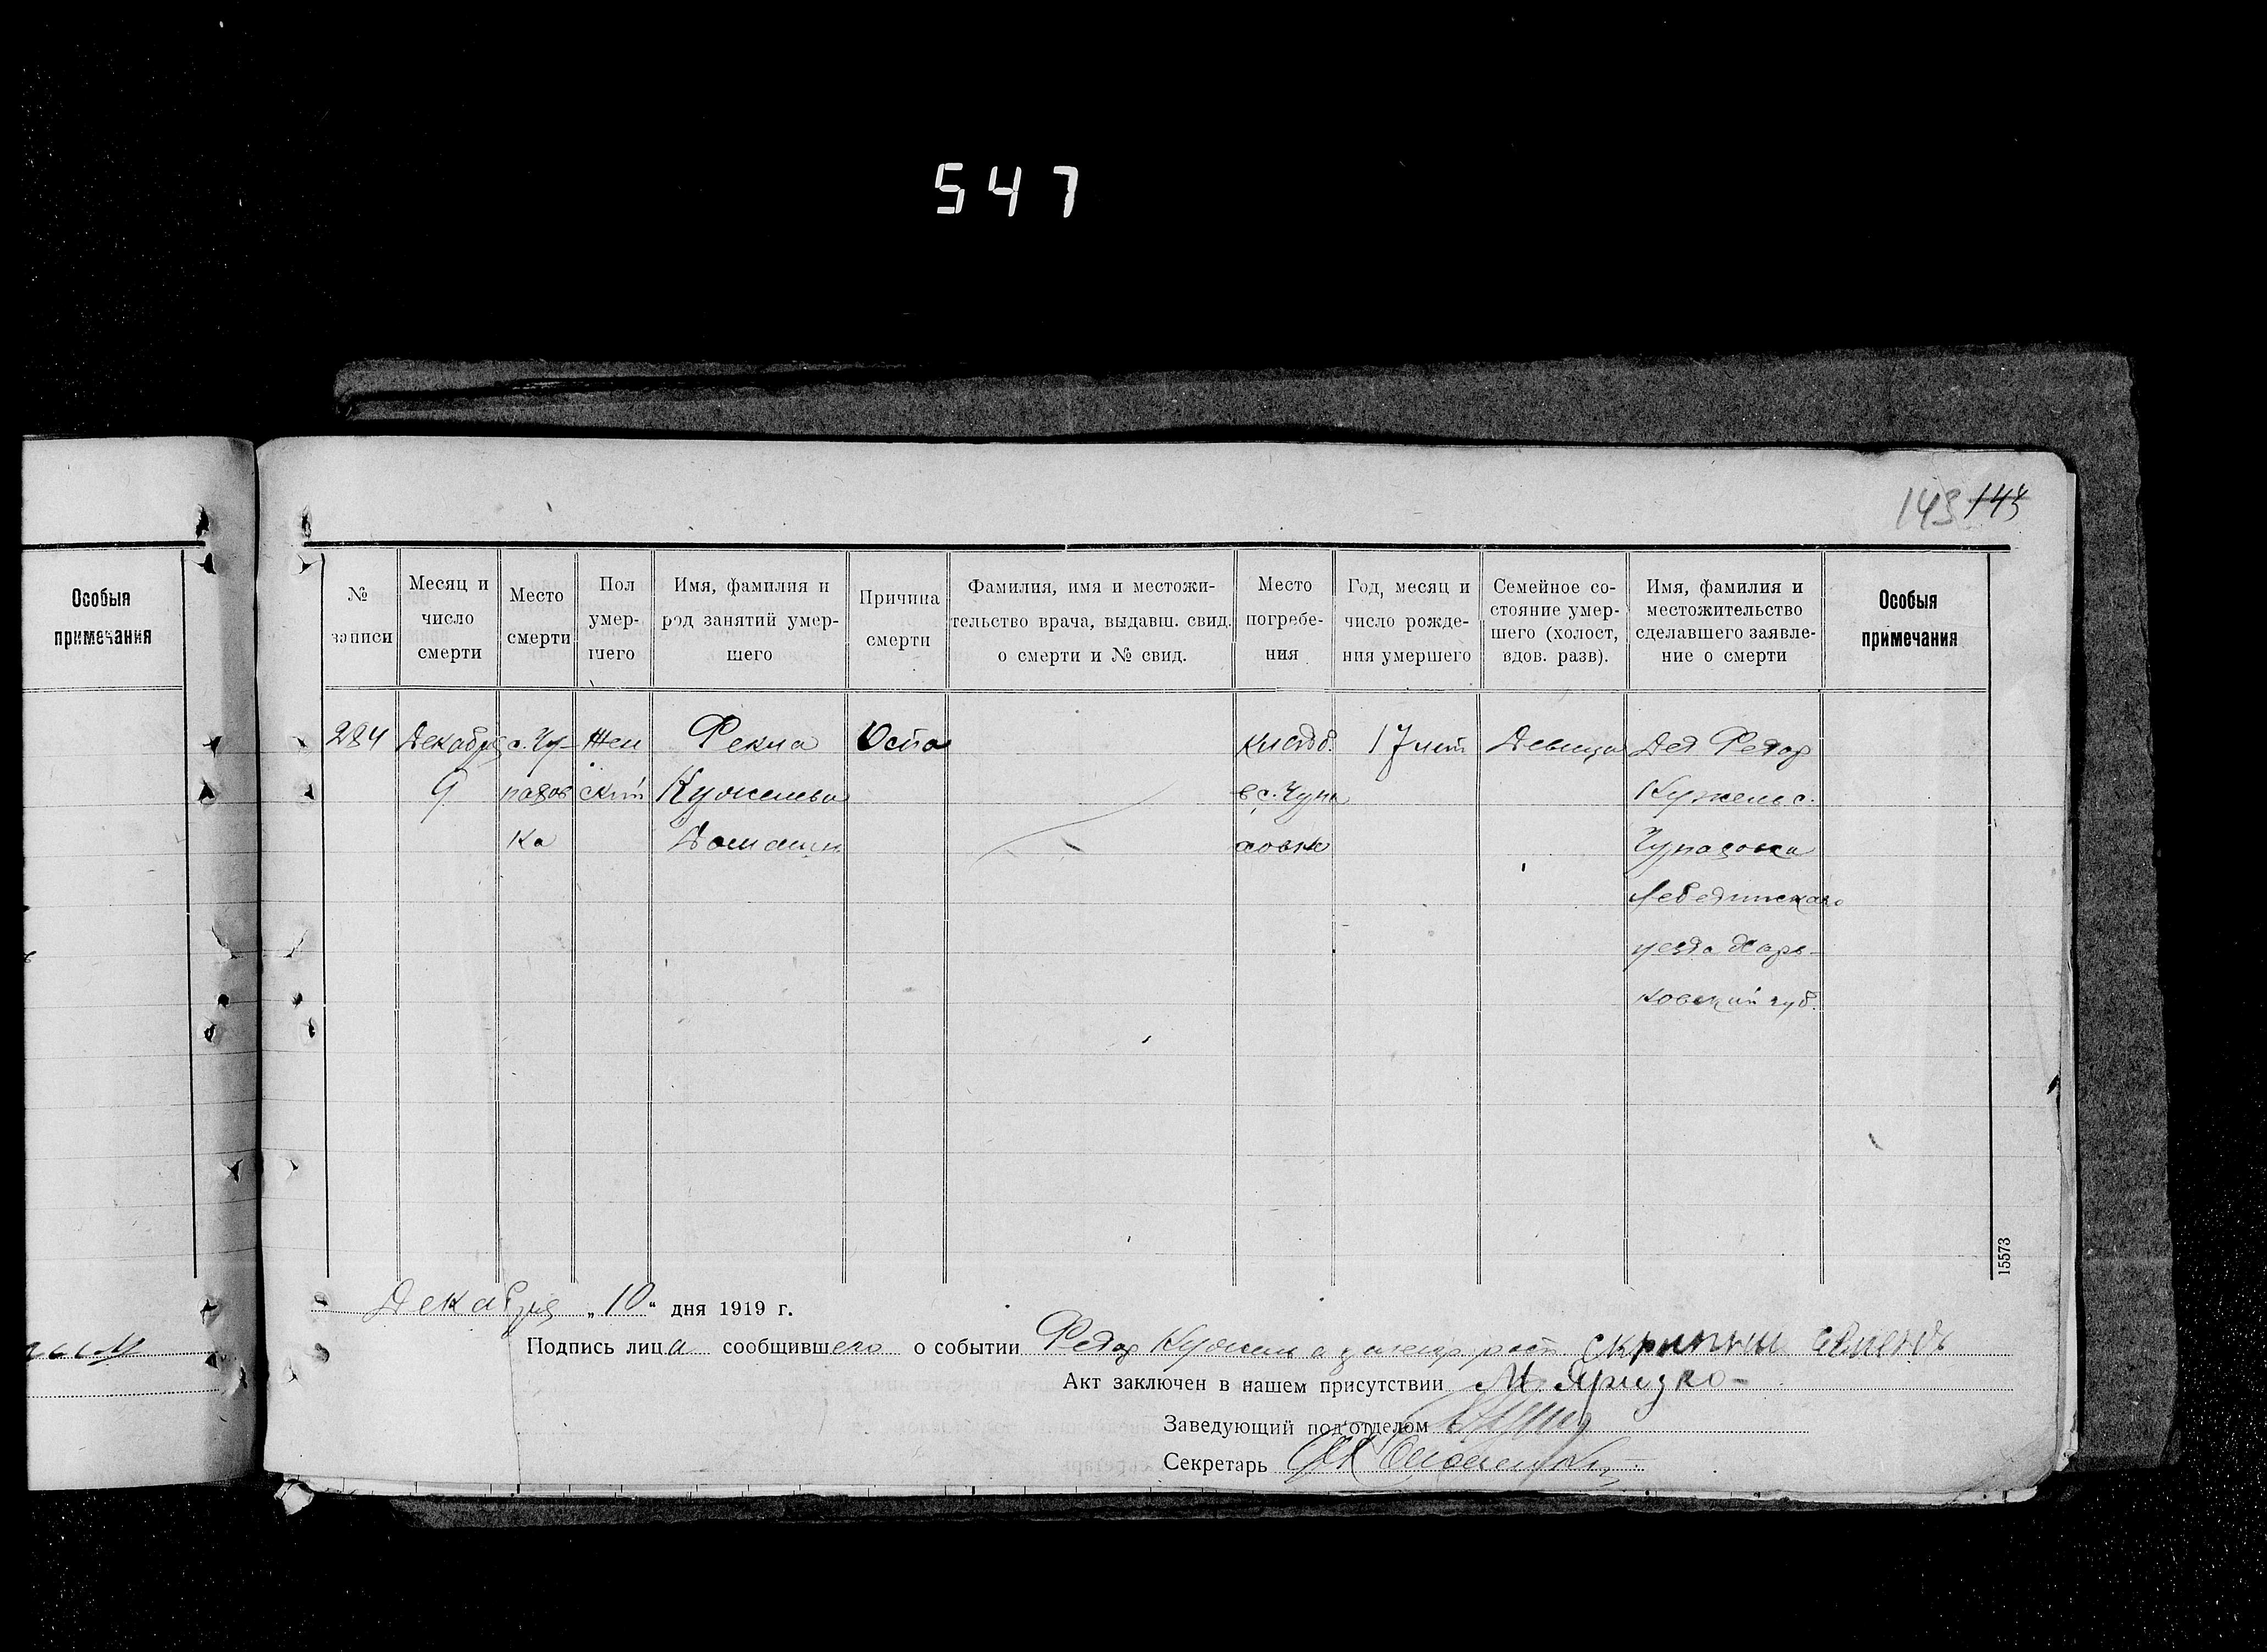 547
143 144
Особыя
примечания
№
записи
Месяц и
число
смерти
Место
смерти
Пол
умер-
шего
Имя, фамилия и
род занятий умер-
шего
Причина
смерти
Фамилия, имя и местожи-
тельство врача, выдавш. свид.
о смерти и № свид.
Место
погребе-
ния
Год, месяц и
число рожде-
ния умершего
Семейное со-
стояние умер-
шего (холост,
вдов. разв).
Имя, фамилия и
местожительство
сделавшего заявле-
ние о смерти
Особыя
примечания
284
Декабря
9
с. Чу-
пахов
ка
Жен
ский
Фекла
Кужельва
Домашн
Оспа
кладб.
в с. Чупа
ховке
17 лет
Девица
Дед Федор
Кужель с.
Чупаховка
Лебединскаго
уезда Харь-
ковский губ.
15573
Декабря „10“ дня 1919 г.
Подпись лица сообщившего о событии Федор Кужель а
Акт заключен в нашем присутствии М.
Заведующий подотделом
Секретарь